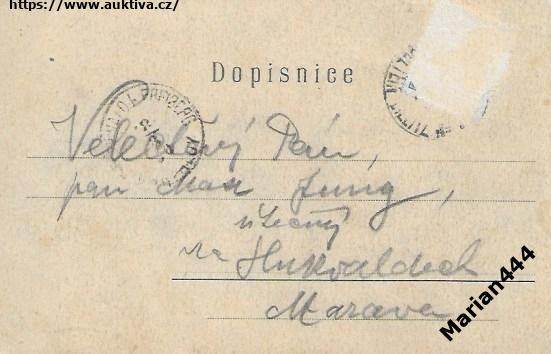 https://www.auktiva.cz/
Dopisnice
Velectěný Pán,
pan Max Jung,
na Hukvaldech
Morava
Marian444